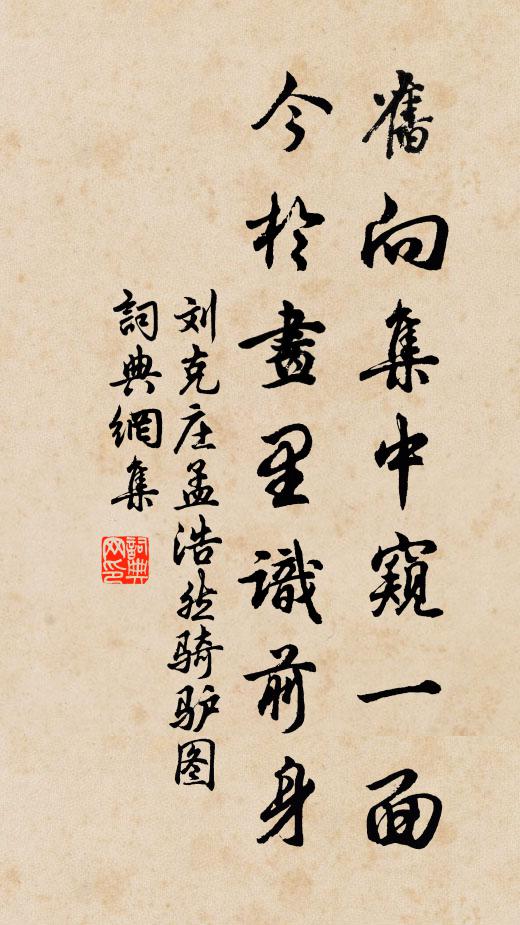 舊向集中窺一面
今於畫里識前身
刘克庄孟浩然骑驴图
詞典網集
詞典网印